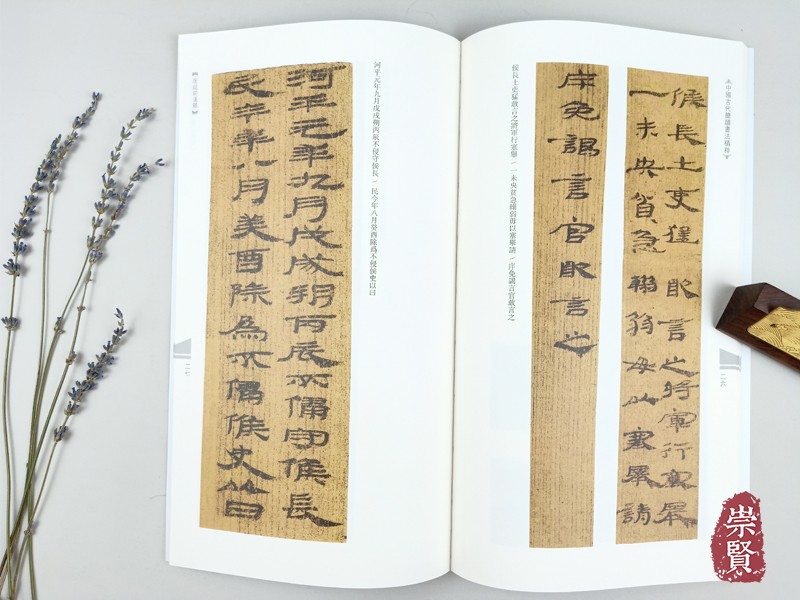 中國古代簡牘書法精粹
候長士吏猛敢言之將軍行塞舉
一未央貧急輸翁毋以塞舉請
序免謁言官敢言之
候長士吏猛敢言之將軍行塞舉/一未央貧急輸弱毋以塞舉請/序免謁言官敢言之
二六
河平元年九月戊戌朔丙辰不侵守候長/民今年八月癸酉除為不侵候史以日
河平元年九月戊戌朔丙辰不侵守候長
民今年八月癸酉除為不侵候史以日
二七
崇賢